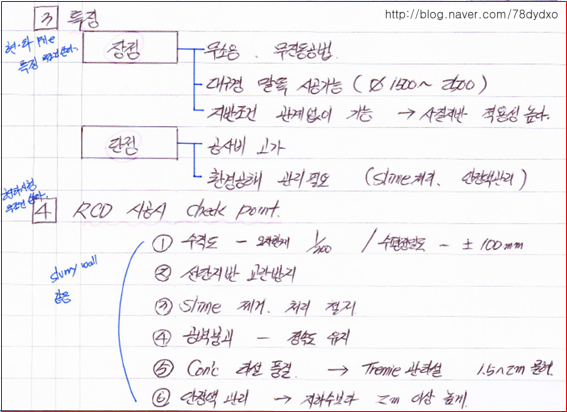 http://blog.naver.com/78dydxo
3 특징
현·타 Pile
특징
장점 무소음 . 무진동공법.
대구경 말뚝 시공가능 ( Ø 1500 ~ 2500 )
지반조건 관계없이 가능 → 사질지반 적용성 높다.
단점 공사비 고가
환경공해 관리 필요 ( Slime 처리. 안정액관리 )
4 RCD 시공시 check point.
① 수직도 - 오차한계 1/200 / 수평정밀도 - ± 100mm
② 선단지반 교란방지
slurry wall
같음
③ Slime 제거. 처리 철저
④ 공벽붕괴 - 정속도 유지
⑤ Con'c 타설 품질. → Tremie 관타설 1.5~2m
⑥ 안정액 관리 → 지하수보다 2m 이상 높게.